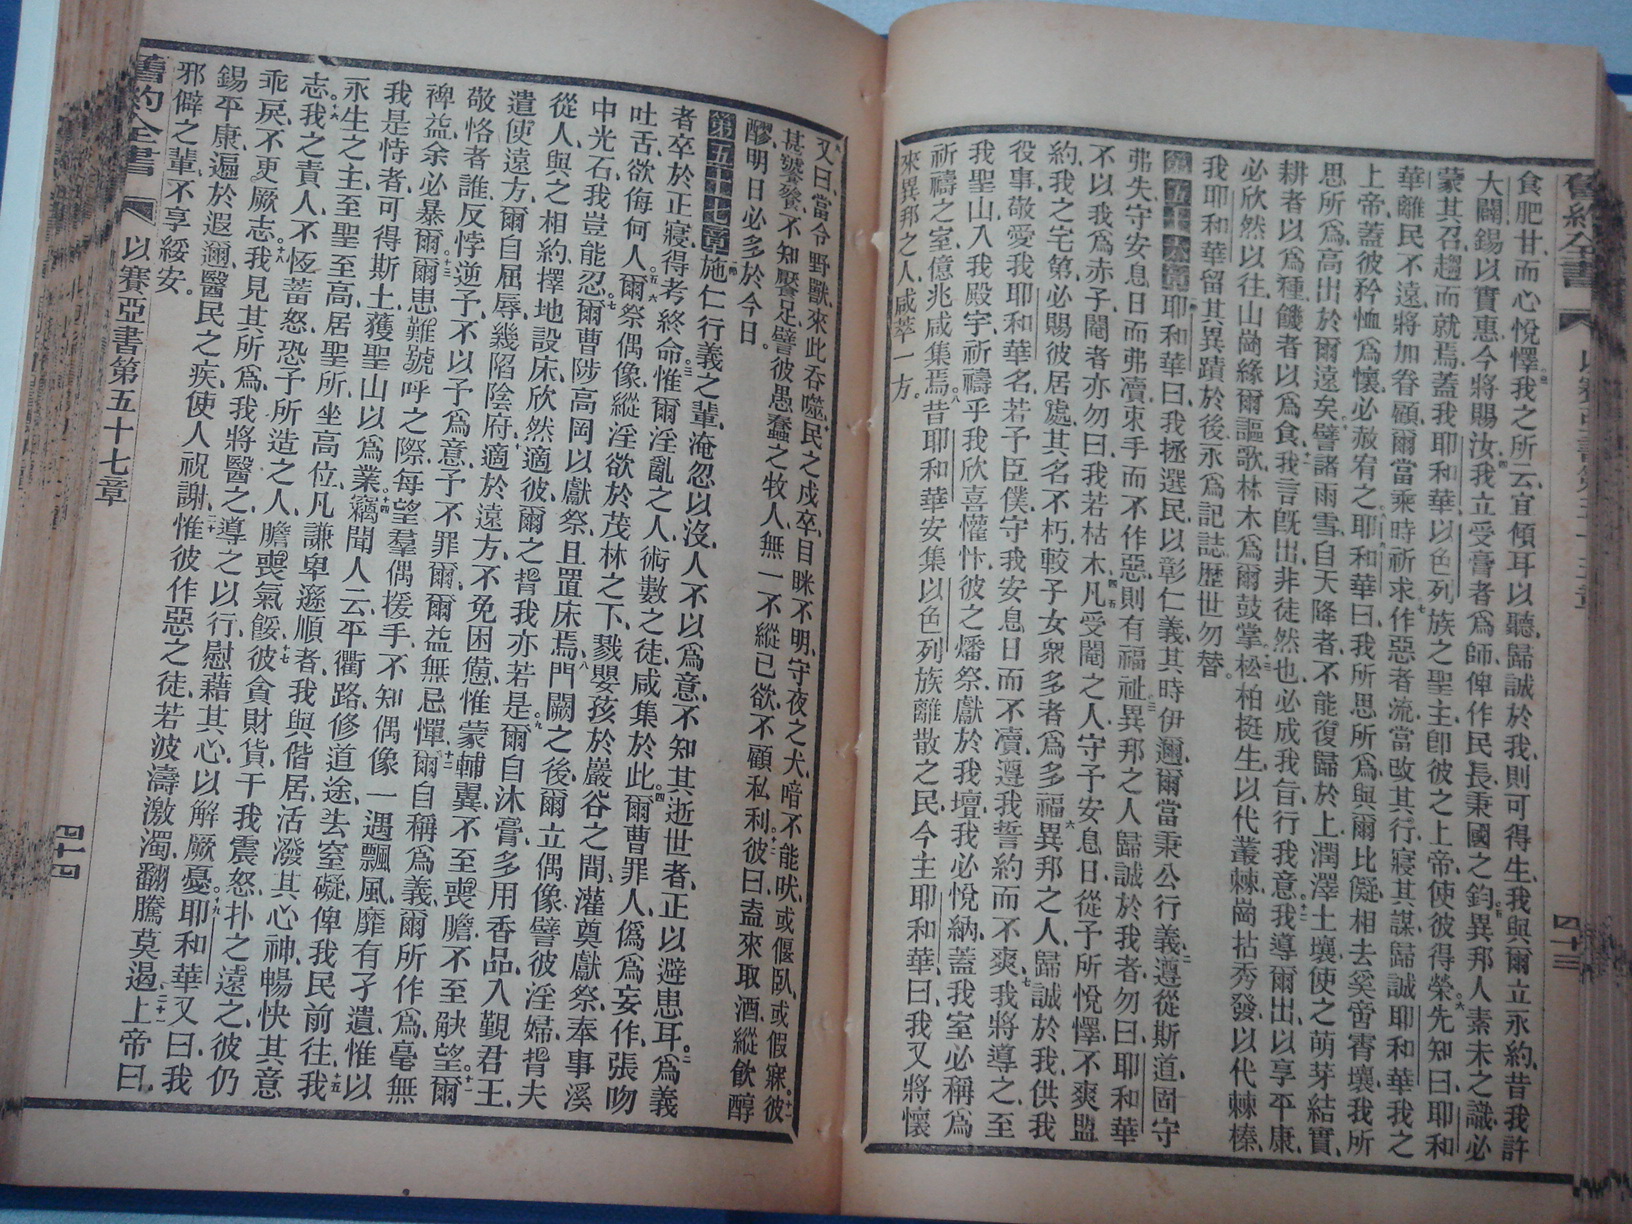 舊約全書 以賽亞書第五十五章 四十三
食肥甘而心悅懌、我之所云、宜傾耳以聽、歸誠於我、則可得生、我與爾立永約、昔我許
大闢、錫以實惠、今將賜汝、我立受膏者爲師、俾作民長、秉國之鈞、異邦人素未之識、必
蒙其召、趨而就焉、蓋我耶和華以色列族之聖主、卽彼之上帝、使彼得榮。先知曰、耶和
華離民不遠、將加眷顧、爾當乘時祈求、作惡者流、當改其行、寢其謀、歸誠耶和華我之
上帝、蓋彼矜恤爲懷、必赦宥之。耶和華曰、我所思所爲、與爾比儗、相去奚啻霄壤、我所
思所爲、高出於爾遠矣。譬諸雨雪、自天降者、不能復歸於上、潤澤土壤、使之萌芽結實、
耕者以爲種、饑者以爲食、我言旣出、非徒然也、必成我旨、行我意、我導爾出、以享平康、
必欣然以往、山崗緣爾謳歌、林木爲爾鼓掌、松柏挺生、以代叢棘、崗拈秀發、以代棘榛、
我耶和華留其異蹟於後、永爲記誌、歷世勿替。
第五十六章耶和華曰、我拯選民、以彰仁義、其時伊邇、爾當秉公行義、遵從斯道、固守
弗失、守安息日而弗瀆、束手而不作惡、則有福祉、異邦之人、歸誠於我者、勿曰、耶和華
不以我爲赤子、閹者亦勿曰、我若枯木、凡受閹之人、守予安息日、從予所悅懌、不爽盟
約、我之宅第、必賜彼居處、其名不朽、較子女衆多者爲多福、異邦之人、歸誠於我、供我
役事、敬愛我耶和華名、若予臣僕、守我安息日而不瀆、遵我誓約而不爽、我將導之、至
我聖山、入我殿宇、祈禱乎我、欣喜懽忭、彼之燔祭、獻於我壇、我必悅納、蓋我室必稱爲
祈禱之室、億兆咸集焉。昔耶和華安集以色列族離散之民、今主耶和華曰、我又將懷
來異邦之人、咸萃一方。
又曰、當令野獸來此呑噬、民之戍卒、目眯不明、守夜之犬、喑不能吠、或偃臥、或假寐。彼
甚饕餮、不知饜足、譬彼愚蠢之牧人、無一不縱已欲、不顧私利、彼曰、盍來取酒、縱飲醇
醪、明日必多於今日。
第五十七章施仁行義之輩、淹忽以沒、人不以爲意、不知其逝世者、正以避患耳。爲義
者卒於正寢、得考終命。惟爾淫亂之人、術數之徒、咸集於此。爾曹罪人、僞爲妄作、張吻
吐舌、欲侮何人。爾祭偶像、縱淫欲於茂林之下、戮嬰孩於巖谷之間、灌奠獻祭、奉事溪
中光石、我豈能忍。爾曹陟高岡以獻祭、且置床焉、門闢之後、爾立偶像、譬彼淫婦、背夫
從人、與之相約、擇地設床、欣然適彼、爾之背我亦若是。爾自沐膏、多用香品、入覲君王、
遣使遠方、爾自屈辱、幾陷陰府、適於遠方、不免困憊、惟蒙輔翼、不至喪膽、不至觖望。爾
敬恪者誰、反悖逆予、不以予爲意、予不罪爾、爾益無忌憚、爾自稱爲義、爾所作爲、毫無
裨益、余必暴爾、爾患難號呼之際、每望羣偶援手、不知偶像一遇飄風、靡有孑遺、惟以
我是恃者、可得斯土、獲聖山以爲業。竊聞人云、平衢路、修道途、去窒礙、俾我民前往、我
永生之主、至聖至高、居聖所、坐高位、凡謙卑遜順者、我與偕居、活潑其心神、暢快其意
志。我之責人、不恆蓄怒、恐予所造之人、膽喪氣餒、彼貪財貨、干我震怒、扑之遠之、彼仍
乖戾、不更厥志、我見其所爲、我將醫之、導之以行、慰藉其心、以解厥憂。耶和華又曰、我
錫平康、遍於遐邇、醫民之疾、使人祝謝、惟彼作惡之徒、若波濤激濁、翻騰莫遏、上帝曰、
邪僻之輩、不享綏安。
舊約全書 以賽亞書第五十七章 四十四